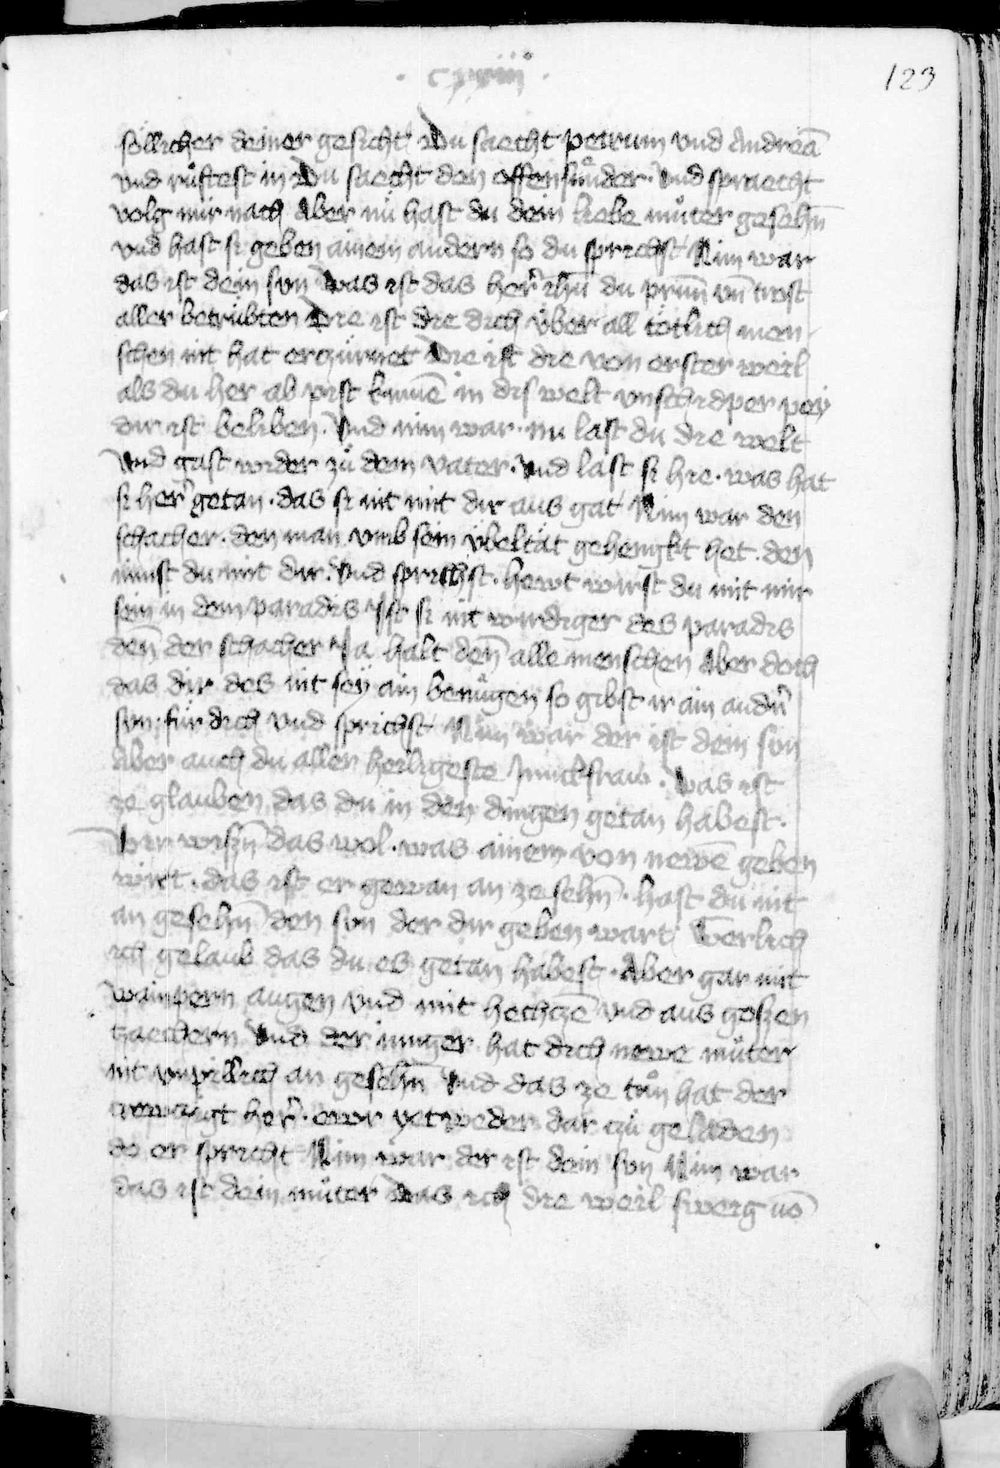 · cxxiii ·
123
söllicher deiner gesicht Du saecht petrum vnd Andreā
vnd růftest in Du saecht den offen sůnder · Vnd spraecht
volg mir nach Aber nů hast du dein liebe můter gesehn̄
vnd hast si geben ainem andern so du sprichst Nim war
das ist dein sun Was ist das her̄ ihū du prūn vn̄ trost
aller betrůbten Die ist die dich über all tötlich men
schen nit hat erzürnet Die ist die von erster weil
als du her ab pist kumē in dis welt vnschidper pey
dir ist beliben. Vnd nim war · nu last du die welt
Vnd gast wider zů dem vater · Vnd last si hie · was hat
si her̄ getan · das si nit mit dir aus gat Nim war den
schacher · den man vmb sein übeltät gehengkt het · den
nimst du mit dir · Vnd sprichst · hewt wirst du mit mir
sein in dem paradis Ist si nit wirdiger des paradis
den̄ der schacher Ja halt den̄ alle menschen Aber doch
das dir des nit sey ain benůgen so gibst ir ain andn̄
sun · für dich vnd sprichst Nim war der ist dein sun
Aber auch du aller heiligeste Junckfraw · Was ist
ze glauben das du in den dingen getan habest ·
Wir wißn̄ das wol · was ainem von newē geben
wirt · das ist er gewan an ze sehn̄ · hast du nit
an gesehn̄ den sun der dir geben wart Werlich
ich gelaub das du es getan habest · Aber gar mit
wainpern augen vnd mit hechczē vnd aus goßen
zaechern Vnd der iunger hat dich newe můter
nit vnpillich an gesehn̄ Vnd das ze tůn hat der
her̄ · ewr yetweder dar zů geladen
do er spricht Nim war der ist dein sun Nim war
das ist dein můter Was ich die weil sweig vō